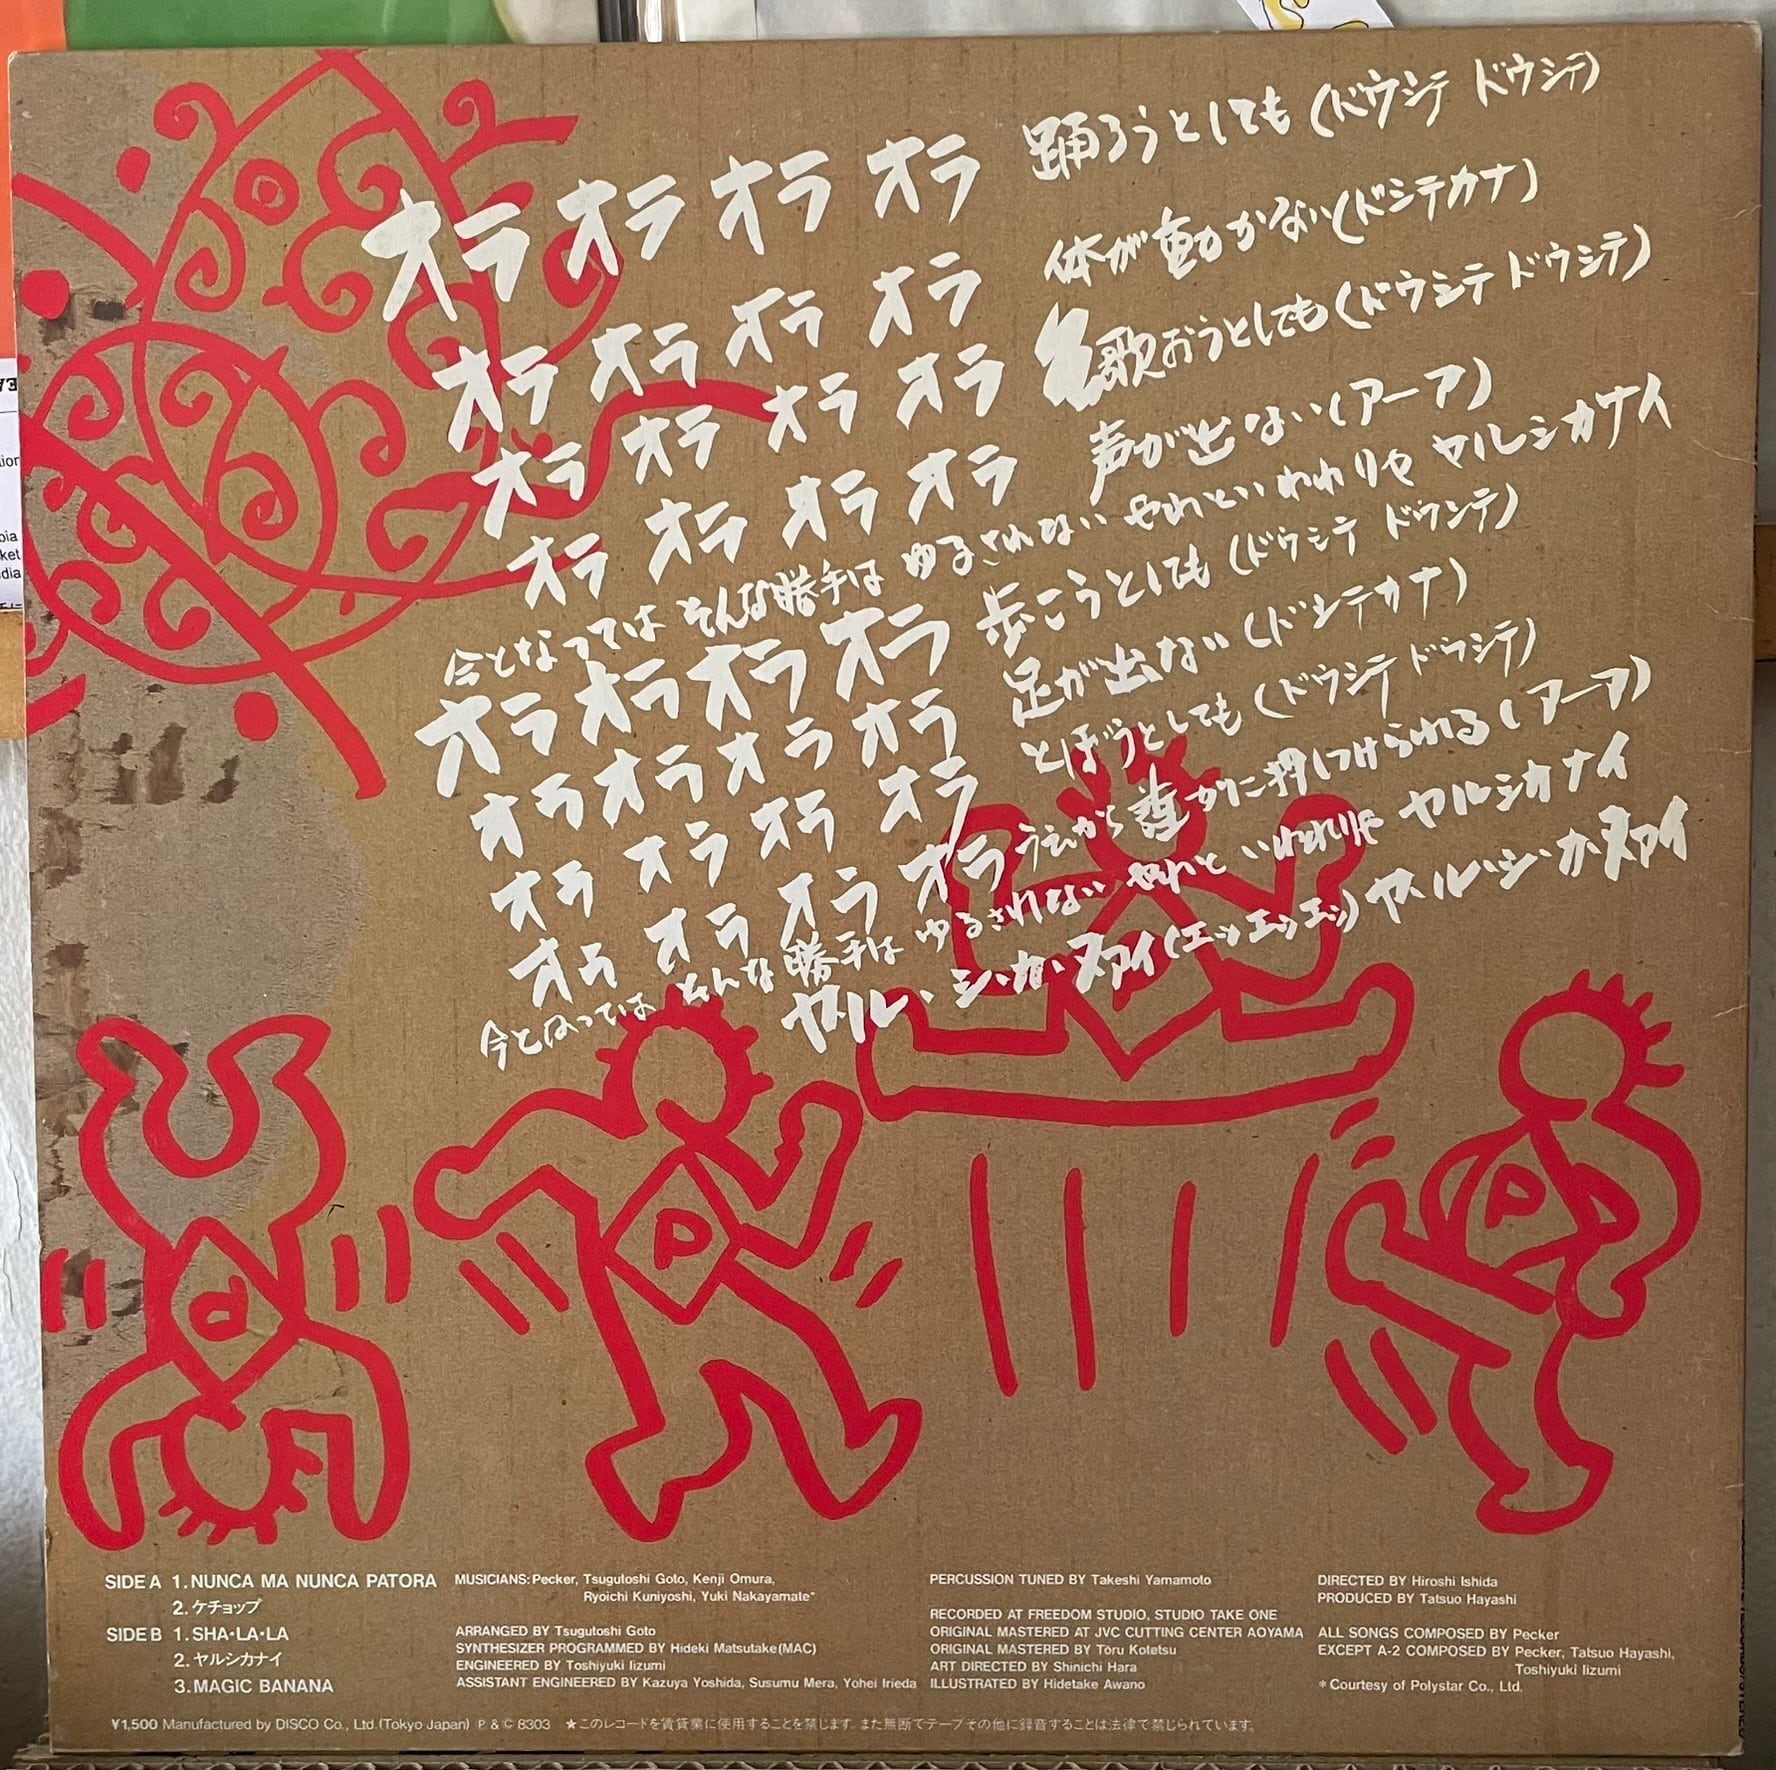 オラ オラ オラ オラ 踊ろうとしても (ドウシテ ドウシテ)
オラ オラ オラ オラ 体が動かない (ドシテカナ)
オラ オラ オラ オラ 歌おうとしても (ドウシテ ドウシテ)
オラ オラ オラ オラ 声が出ない (アーア)
今となっては そんな勝手は ゆるされない やれといわれりゃ ヤルシカナイ
オラ オラ オラ オラ 歩こうとしても (ドウシテ ドウシテ)
オラ オラ オラ オラ 足が出ない (ドシテカナ)
オラ オラ オラ オラ とぼうとしても (ドウシテ ドウシテ)
オラ オラ オラ オラ うえから 誰かに押しつけられる (アーア)
今となっては そんな勝手は ゆるされない やれと いわれりゃ ヤルシカナイ
ヤ・ル・シ・カ・ヌァイ (エッエッエッ) ヤ・ル・シ・カ・ヌァイ
P
P
P
P
SIDE A 1. NUNCA MA NUNCA PATORA
2. ケチョップ
SIDE B 1. SHA・LA・LA
2. ヤルシカナイ
3. MAGIC BANANA
MUSICIANS: Pecker, Tsugutoshi Goto, Kenji Omura,
Ryoichi Kuniyoshi, Yuki Nakayamate*
ARRANGED BY Tsugutoshi Goto
SYNTHESIZER PROGRAMMED BY Hideki Matsutake(MAC)
ENGINEERED BY Toshiyuki Iizumi
ASSISTANT ENGINEERED BY Kazuya Yoshida, Susumu Mera, Yohei Irieda
PERCUSSION TUNED BY Takeshi Yamamoto
RECORDED AT FREEDOM STUDIO, STUDIO TAKE ONE
ORIGINAL MASTERED AT JVC CUTTING CENTER AOYAMA
ORIGINAL MASTERED BY Tōru Kotetsu
ART DIRECTED BY Shinichi Hara
ILLUSTRATED BY Hidetake Awano
DIRECTED BY Hiroshi Ishida
PRODUCED BY Tatsuo Hayashi
ALL SONGS COMPOSED BY Pecker
EXCEPT A-2 COMPOSED BY Pecker, Tatsuo Hayashi,
Toshiyuki Iizumi
* Courtesy of Polystar Co., Ltd.
¥1,500 Manufactured by DISCO Co., Ltd. (Tokyo Japan) Ⓟ & © 8303 ★このレコードを賃貸業に使用することを禁じます。また無断でテープその他に録音することは法律で禁じられています。